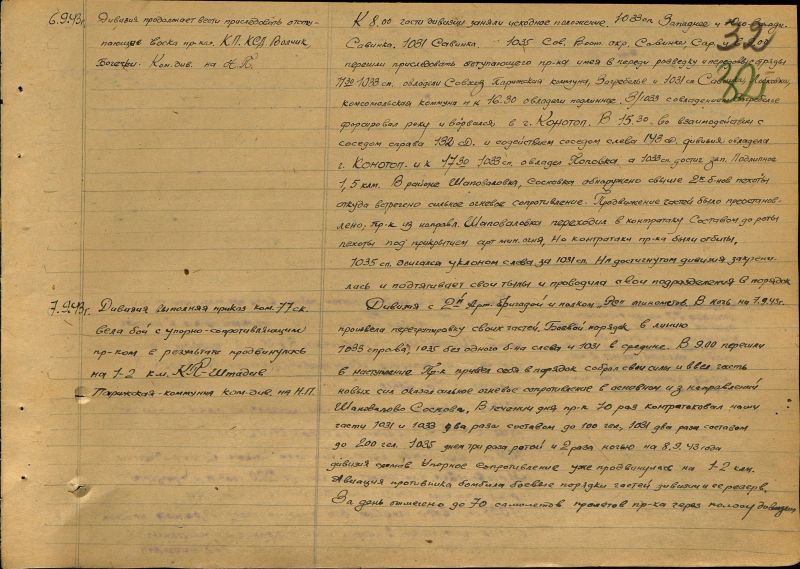 6.9.43г. Дивизия продолжает вести приследовать отсту-
пающие войска пр-ка. К.П. КСД Волчик,
Богачки. Ком.див. на Н.П.
32
321
К 8.00 части дивизии заняли исходное положение. 1033 сп. Западнее и
Савинка, 1031 Савинка. 1035 Сов. Вост. окр. Савинки Сар. и 8.00
перешли приследовать отступающего пр-ка имея в переди розведку и передовые отряды
11.30 1033 сп. овладели Совхоз Парижская коммуна, Загребелье и 1031 сп Савинка,
комсомольская коммуна и к 16.30 овладели подлинное. 3/1033 с овладением
форсировал реку и ворвался в г. Конотоп. В 15.30. во взаимодействии с
соседом справа 132 сд. и содействием соседом слева 143 сд. дивизия овладела
г. Конотоп. и к 17.30 1033 сп. овладел Поповка а 1033 сп. достиг зап. Подлипное
1,5 клм. В районе Шаповаловка, Сосновка обнаружено свыше 2х б-нов пехоты
откуда встречено сильное огневое сопротивление. Продвижение частей было преостанов-
лено, пр-к из направл. Шаповаловка переходил в контратаку Составом до роты
пехоты под прикрытием арт. мин. огня. Но контратаки пр-ка были отбиты.
1035 сп. двигался уклоном слева за 1031 сп. На достигнутом дивизия закрепи-
лась и подтягивает свои тылы и проводила свои подразделения в порядок
7.9.43г. Дивизия выполняя приказ ком. 77 ск.
вела бой с упорно-сопротивляющимся
пр-ком в результате продвинулась
на 1-2 км. КП-штадив
Парижская-коммуна ком-див. на Н.П.
Дивизия с 2й Арт. бригадой и полком "Рс" минометов. В ночь на 7.9.43г.
произвела перегрупировку своих частей. Боевой порядок в линию
1033 справа, 1035 без одного б-на слева и 1031 в средине. В 9.00 перешли
в наступление Пр-к привел себя в порядок собрал свои силы и ввел часть
новых сил оказал сильное огневое сопротивление в основном из направлений
Шаповалово Соснова. В течении дня пр-к 10 раз контратаковал нашу
части 1031 и 1033 два раза составом до 100 чел, 1031 два раза составом
до 200 чел. 1035 днем три раза ротой и 2 раза ночью на 8.9.43 года
дивизия сломив упорное сопротивление уже продвинулась на 1-2 клм.
Авиация противника бомбила боевые порядки частей дивизии и ее резерв.
За день отмечено до 70 самолетов пролетов пр-ка через полосу дивизии